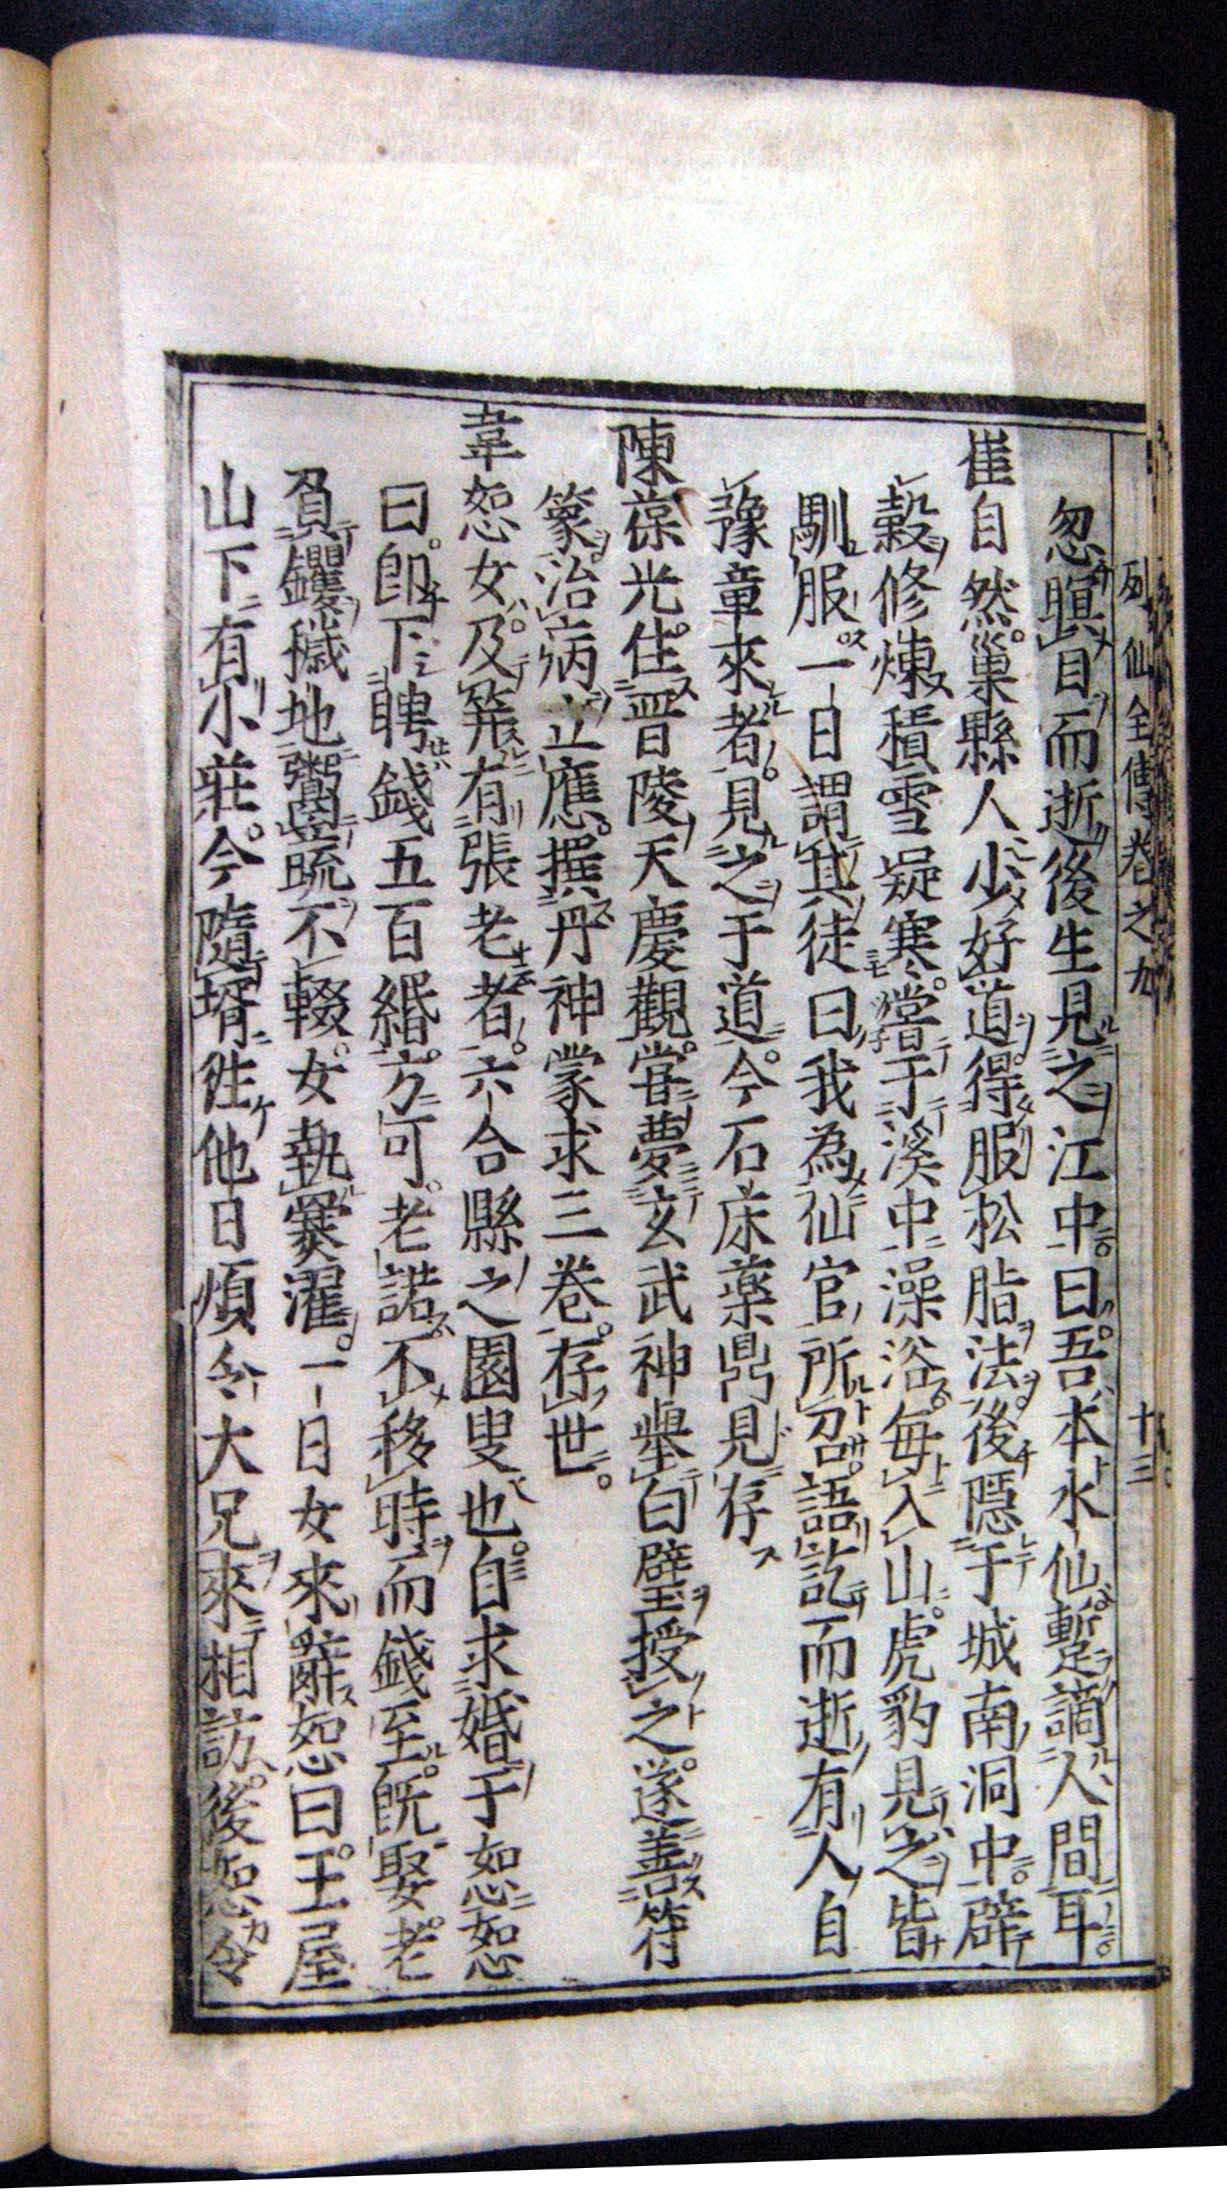 列仙全傳卷之九　十三
忽瞑目而逝後生見之江中曰吾本水仙蹔謫人間耳
崔自然巢縣人少好道得服松脂法後隱于城南洞中辟
穀修煉積雪凝寒嘗于溪中澡浴每入山虎豹見之皆
馴服一日謂其徒曰我為仙官所召語訖而逝有人自
豫章來者見之于道今石床藥鼎見存
陳葆光住晉陵天慶觀嘗夢玄武神舉白璧授之遂善符
篆治病立應撰丹神蒙求三卷存世
韋恕女及筓有張老者六合縣之園叟也自求婚于恕恕
曰卽下聘錢五百緡方可老諾不移時而錢至旣娶老
負钁穢地鬻蔬不輟女執爨濯一日女來辭恕曰王屋
山下有小莊今隨壻徃他日煩令大兄來相訪後恕令